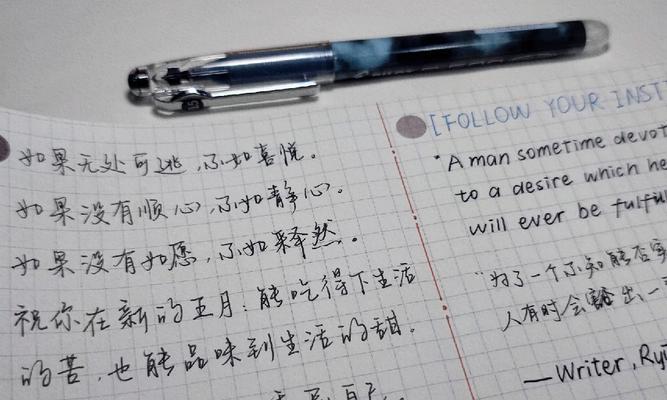 如果无处可逃,不如喜悦。
如果没有顺心,不如静心。
如果没有如愿,不如释然。
祝你在新的五月:能吃得下生活
的苦,也能品味到生活的甜。
[FOLLOW YOUR INST
"A man sometime devot
to a desire which he
will ever be fulful
"为了一个不知能否实
人有时会豁出一
—Writer, Ryū